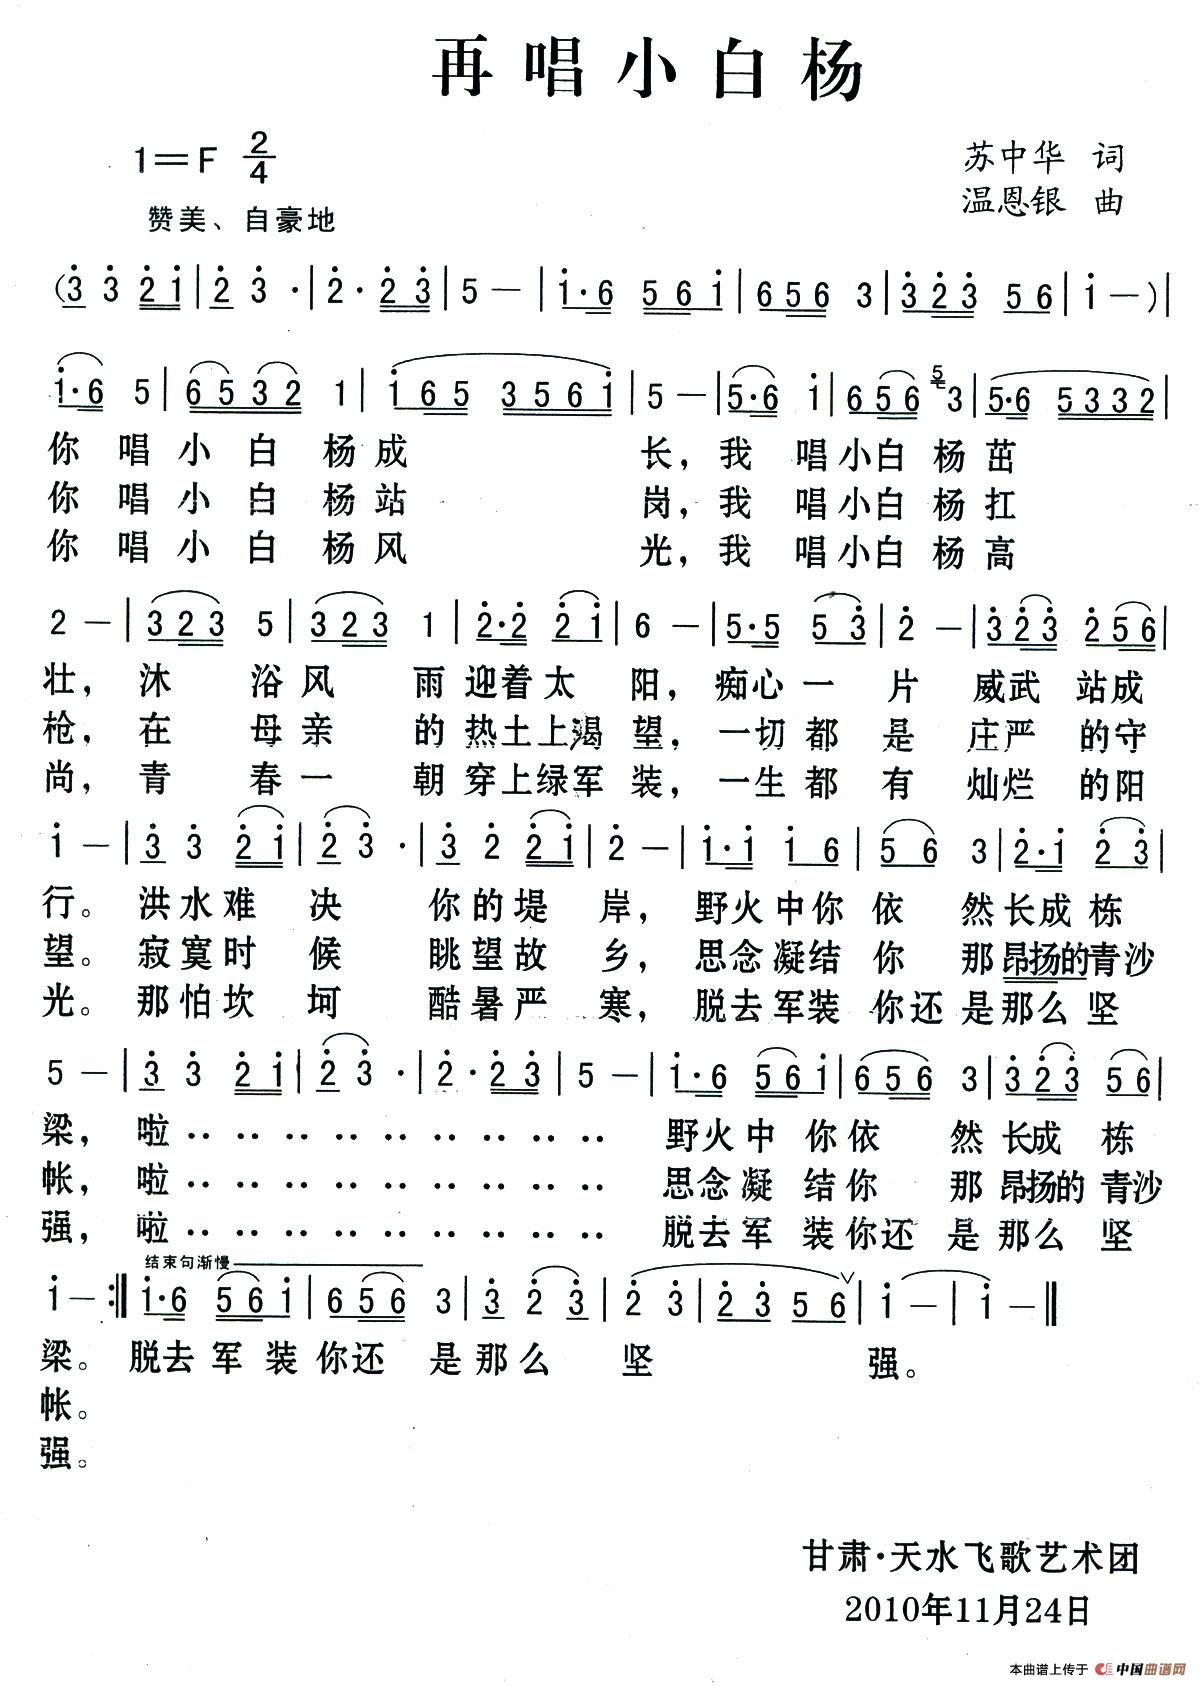 再唱小白杨
1=F 2/4
苏中华 词
赞美、自豪地
温恩银 曲
(3 3 2 1 | 2 3 · | 2 · 2 3 | 5 — | 1 · 6 5 6 1 | 6 5 6 3 | 3 2 3 5 6 | 1 — ) |
1 · 6 5 | 6 5 3 2 1 | 1 6 5 3 5 6 1 | 5 — | 5 · 6 1 | 6 5 6 5 3 | 5 · 6 5 3 3 2 |
你 唱 小 白 杨 成 长，我 唱 小 白 杨 茁
你 唱 小 白 杨 站 岗，我 唱 小 白 杨 扛
你 唱 小 白 杨 风 光，我 唱 小 白 杨 高
2 — | 3 2 3 5 | 3 2 3 1 | 2 · 2 2 1 | 6 — | 5 · 5 5 3 | 2 — | 3 2 3 2 5 6 |
壮，沐 浴 风 雨 迎 着 太 阳，痴 心 一 片 威 武 站 成
枪，在 母 亲 的 热 土 上 渴 望，一 切 都 是 庄 严 的 守
尚，青 春 一 朝 穿 上 绿 军 装，一 生 都 有 灿 烂 的 阳
1 — | 3 3 2 1 | 2 3 · | 3 2 2 1 | 2 — | 1 · 1 1 6 | 5 6 3 | 2 · 1 2 3 |
行。洪 水 难 决 你 的 堤 岸，野 火 中 你 依 然 长 成 栋
望。寂 寞 时 候 眺 望 故 乡，思 念 凝 结 你 那 昂扬的 青 沙
光。那 怕 坎 坷 酷 暑 严 寒，脱 去 军 装 你 还 是 那 么 坚
5 — | 3 3 2 1 | 2 3 · | 2 · 2 3 | 5 — | 1 · 6 5 6 1 | 6 5 6 3 | 3 2 3 5 6 |
梁，啦 ·················· 野 火 中 你 依 然 长 成 栋
帐，啦 ·················· 思 念 凝 结 你 那 昂扬的 青 沙
强，啦 ·················· 脱 去 军 装 你 还 是 那 么 坚
结束句渐慢
1 — :‖ 1 · 6 5 6 1 | 6 5 6 3 | 3 2 3 | 2 3 | 2 3 5 6 ∨ | 1 — | 1 — ‖
梁。脱 去 军 装 你 还 是 那 么 坚 强。
帐。
强。
甘肃·天水飞歌艺术团
2010年11月24日
本曲谱上传于 中国曲谱网